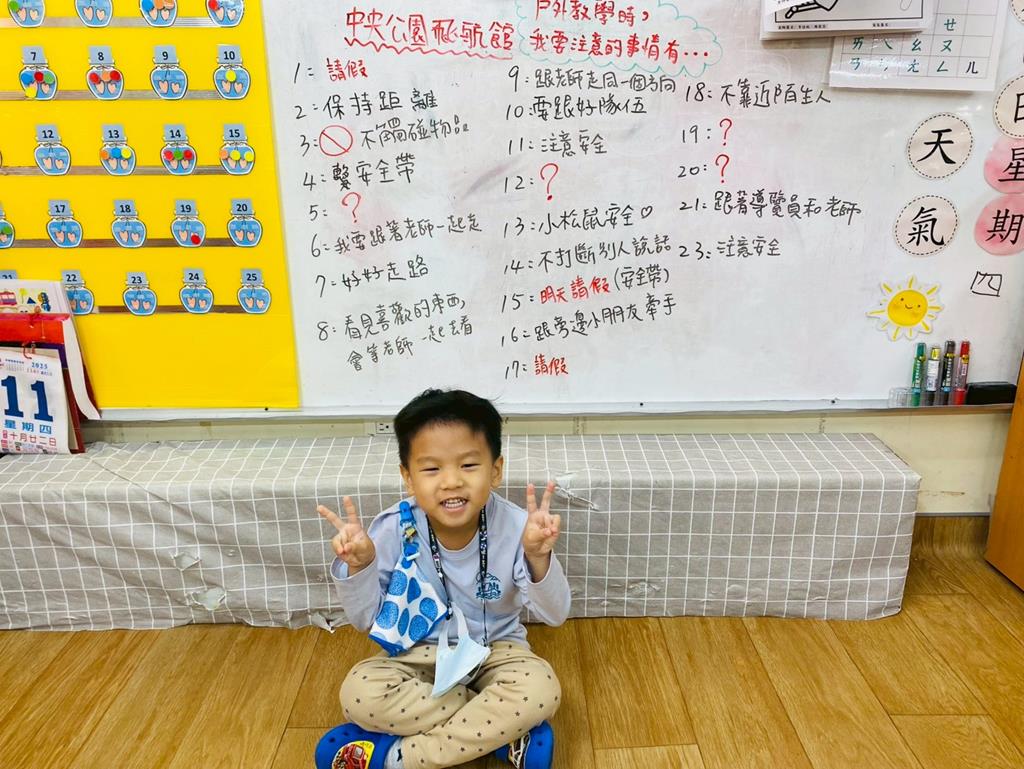 中央公園飛航館
戶外教學時,
我要注意的事情有...
1: 請假
2: 保持距離
3: 不觸碰物品
4: 繫安全帶
5: ?
6: 我要跟著老師一起走
7: 好好走路
8: 看見喜歡的東西,
會等老師一起去看
9: 跟老師走同一個方向
10: 要跟好隊伍
11: 注意安全
12: ?
13: 小松鼠安全♡
14: 不打斷別人說話
15: 明天請假(安全帶)
16: 跟旁邊小朋友牽手
17: 請假
18: 不靠近陌生人
19: ?
20: ?
21: 跟著導覽員和老師
23: 注意安全
7 8 9 10
12 13 14 15
17 18 19 20
21 22 23 24 25
2025
11
星期四
十月廿二日
ㄝ
ㄨ ㄟ ㄠ ㄡ
ㄢ ㄣ ㄤ ㄥ ㄦ
天
氣
日
星
期
四